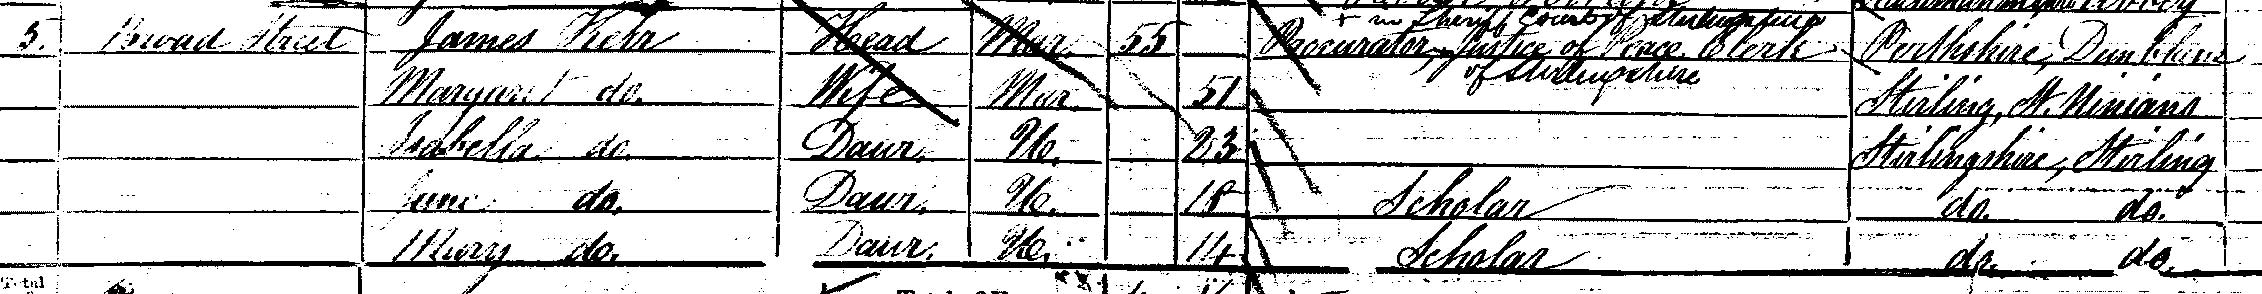 + in Sheriff Court of Stirlingshire
5. Broad Street James Kehr Head Mar 55 Procurator, Justice of Peace Clerk Perthshire, Dunblane
of Stirlingshire
Margaret do. Wife Mar. 51 Stirling, St. Ninians
Isabella do. Daur. U. 23 Stirlingshire, Stirling
Jane do. Daur. U. 18 Scholar do. do.
Mary do. Daur. U. 14 Scholar do. do.
Total